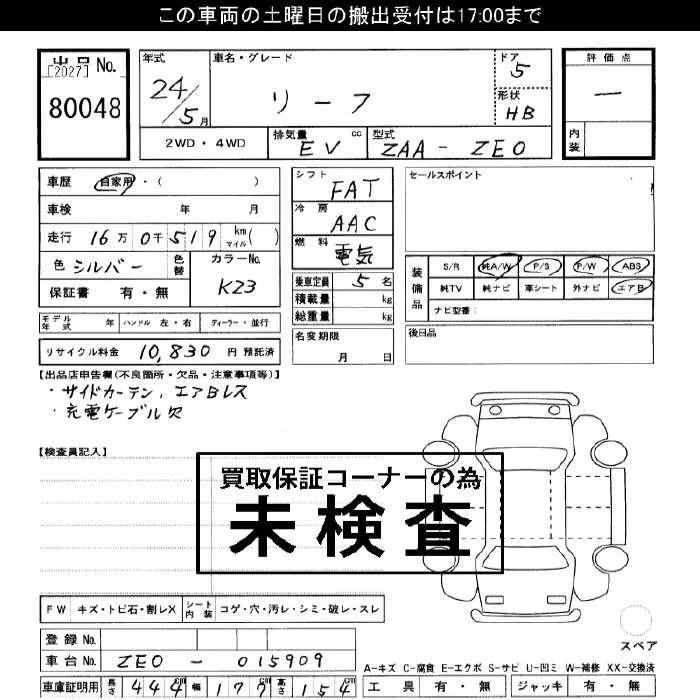 この車両の土曜日の搬出受付は17:00まで
出品 No.
[2027]
80048
年式
24/5月
車名・グレード
リーフ
ドア
5
形状
HB
評価点
ー
内装
2WD・4WD
排気量 cc
EV
型式
ZAA - ZE0
車歴 自家用・( )
車検 年 月
走行 16万0千519 km マイル( )
色 シルバー 色替
カラーNo.
K23
保証書 有・無
シフト
FAT
冷房
AAC
燃料
電気
乗車定員 5 名
積載量 kg
総重量 kg
名変期限
月 日
セールスポイント
装備品
S/R 純A/W P/S P/W ABS
純TV 純ナビ 革シート 外ナビ エアB
ナビ型番:
後日品
モデル年式 年 ハンドル 左・右 ディーラー・並行
リサイクル料金 10,830 円 預託済
【出品店申告欄(不良箇所・欠品・注意事項等)】
・サイドカーテン、エアBレス
・充電ケーブル欠
【検査員記入】
買取保証コーナーの為
未検査
FW キズ・トビ石・割レX シート内装 コゲ・穴・汚レ・シミ・破レ・スレ
スペア
登録 No.
車台No. ZE0 - 015909
車庫証明用 長さ 444cm 幅 177cm 高さ 154cm
A-キズ C-腐食 E-エクボ S-サビ U-凹ミ W-補修 XX-交換済
工具 有・無 ジャッキ 有・無